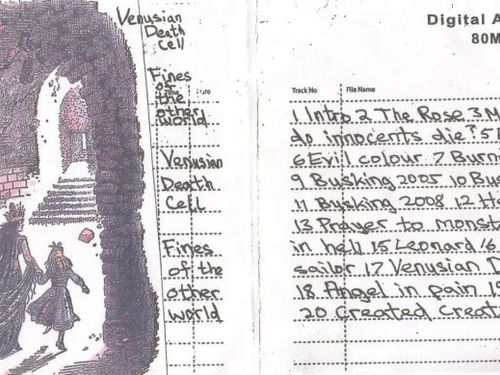 Venusian
Death
Cell
Fines
of
the
other
world
Venusian
Death
Cell
Fines
of the
other
world
Digital A
80M
Track No File Name
1 Intro 2 The Rose 3 M
do innocents die? 5
6 Evil colour 7 Burn
9 Busking 2005 10 Bus
11 Busking 2008 12 H
13 Prayer to monst
in hell 15 Leonard 16
sailor 17 Venusian D
18 Angel in pain 19
20 Created Creat